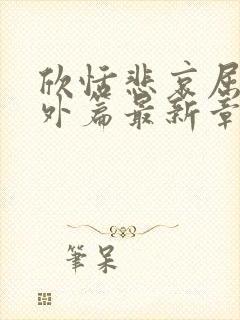 欣恬悲哀屈
外篇最新章
筆呆